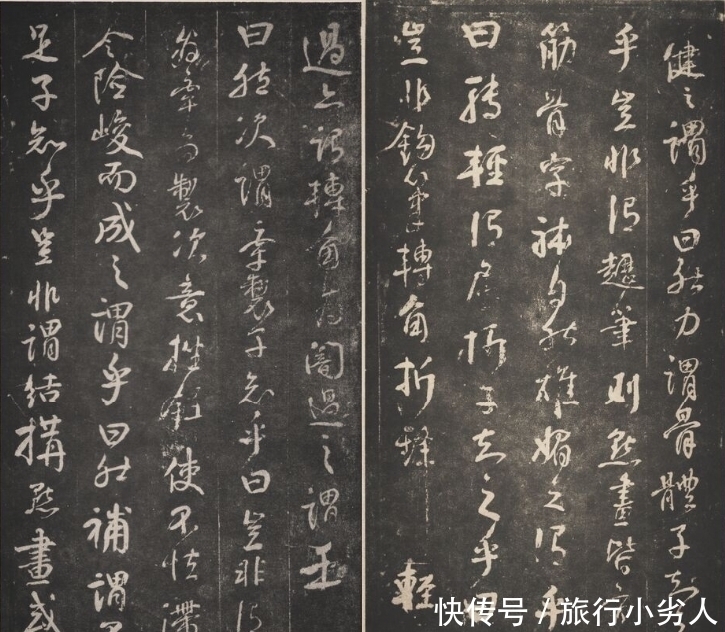 健之謂乎曰然力謂骨體子知
乎豈非謂趯筆則點畫皆有
筋骨字體自然雄媚之謂乎
曰然輕謂屈折子知之乎曰
豈非鈎筆轉角折鋒輕
過亦謂轉角為闇過之謂乎
曰然次謂牽製子知乎曰豈非謂
為牽為製次意挫鋒使不怯滯
令險峻而成之謂乎曰然補謂不
足子知乎豈非謂結構點畫或
快传号/旅行小劣人